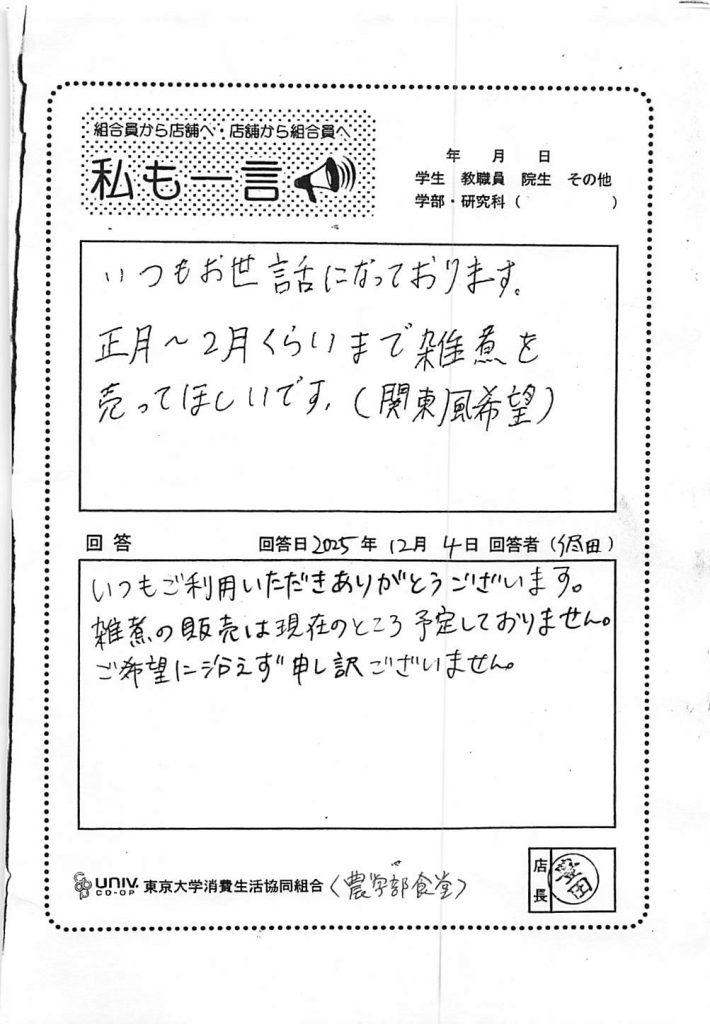 組合員から店舗へ・店舗から組合員へ
私も一言
年 月 日
学生 教職員 院生 その他
学部・研究科( )
いつもお世話になっております。
正月〜2月くらいまで雑煮を
売ってほしいです。(関東風希望)
回答 回答日2025年 12月 4日 回答者( 田)
いつもご利用いただきありがとうございます。
雑煮の販売は現在のところ予定しておりません。
ご希望に沿えず申し訳ございません。
UNIV. CO-OP 東京大学消費生活協同組合〈農学部食堂〉
店長